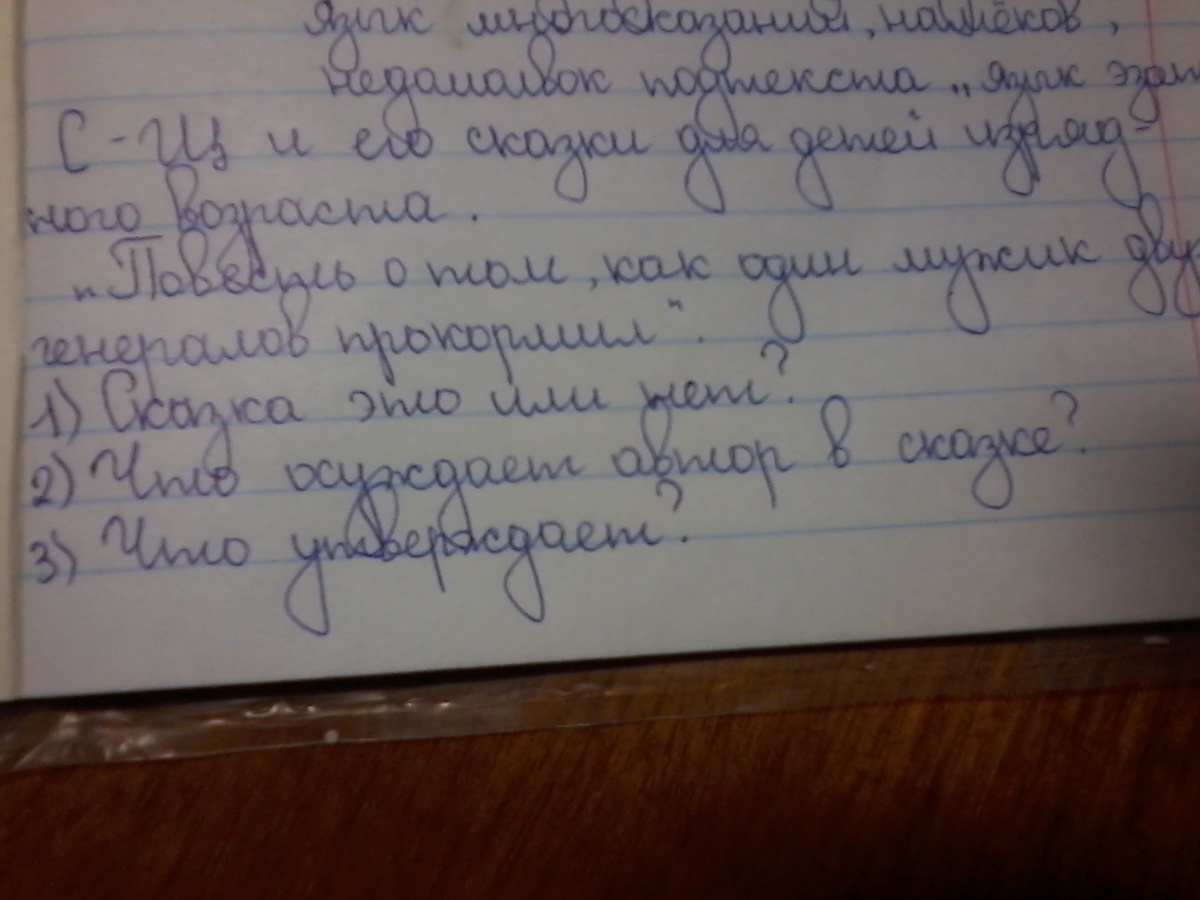 язык многосказаний, намёков,
недомолвок подтекста „язык эзоп
С-Щ и его сказки для детей изряд-
ного возраста.
„Повесть о том, как один мужик дву
генералов прокормил".
1) Сказка это или нет?
2) Что осуждает автор в сказке?
3) Что утверждает?